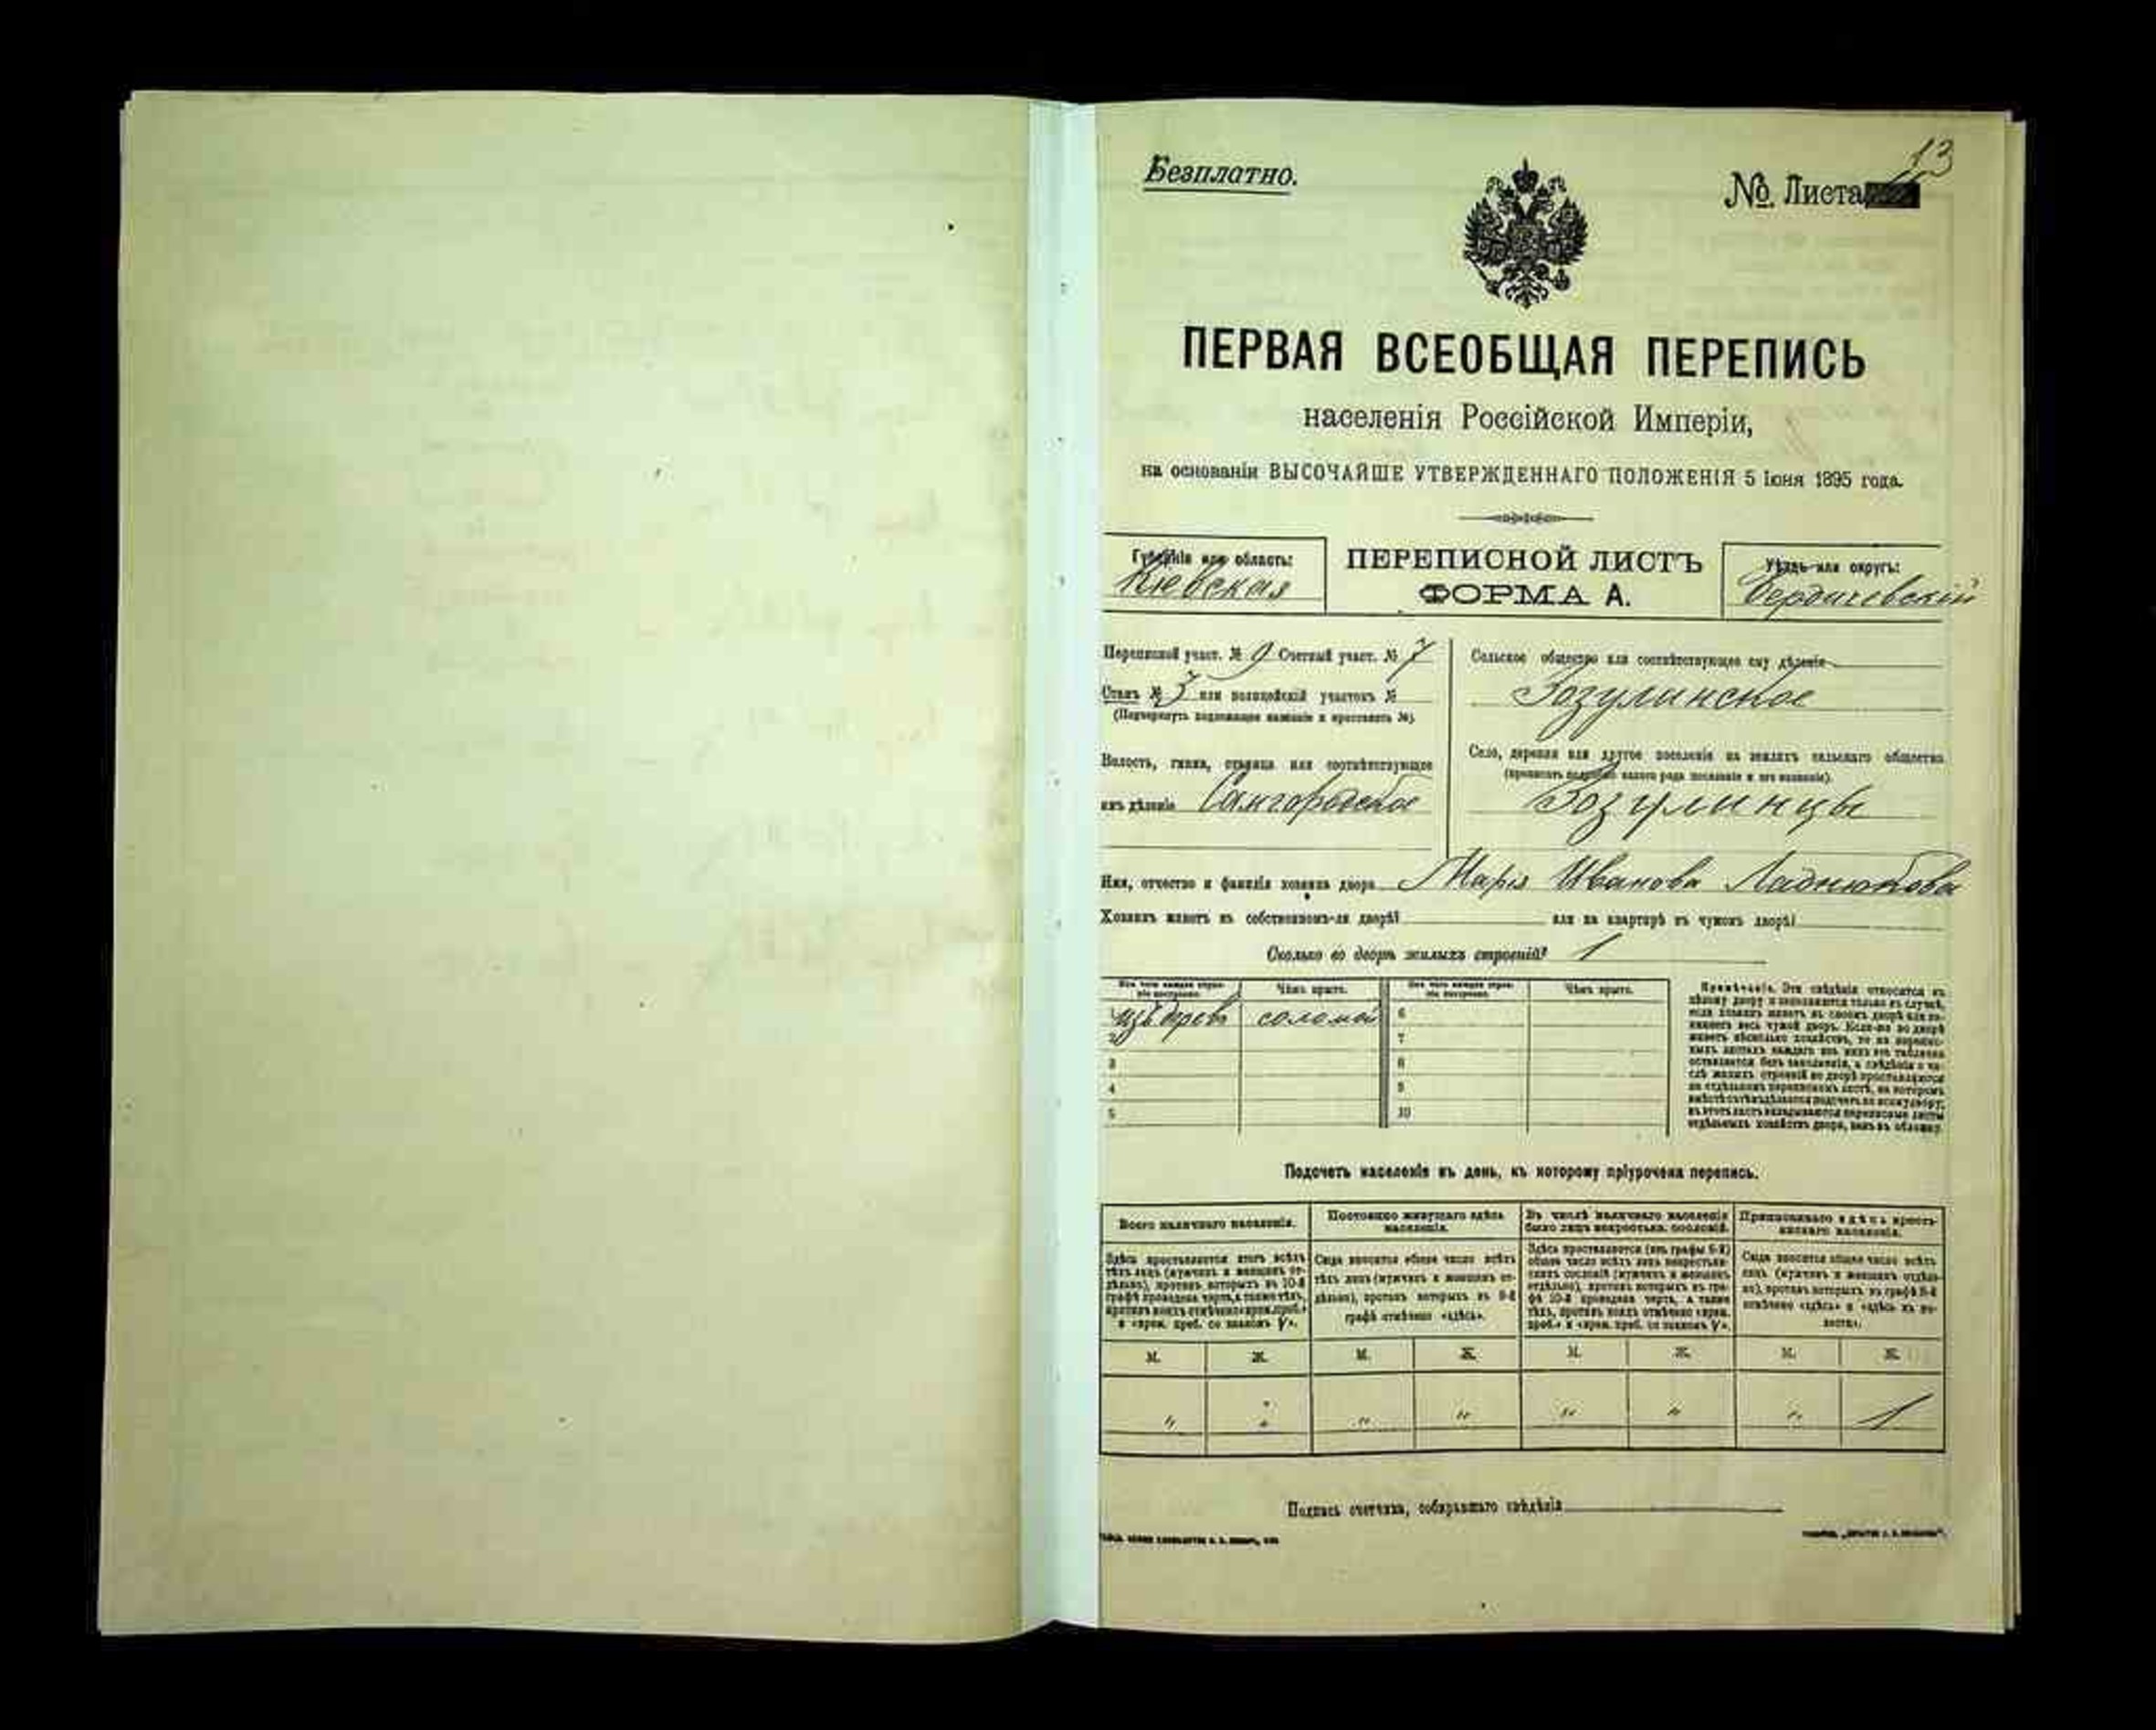 13
Безплатно.
№. Листа
ПЕРВАЯ ВСЕОБЩАЯ ПЕРЕПИСЬ
населенія Россійской Имперіи,
на основаніи ВЫСОЧАЙШЕ УТВЕРЖДЕННАГО ПОЛОЖЕНІЯ 5 Іюня 1895 года.
Губернія или область:
Кіевская
ПЕРЕПИСНОЙ ЛИСТЪ
ФОРМА А.
Уѣздъ или округъ:
Бердичевскій
Переписной участ. № 9 Счетный участ. № 7
Станъ № 3 или полицейскій участокъ №
(Подчеркнуть подлежащее названіе и проставить №).
Волость, гмина, станица или соотвѣтствующее
имъ дѣленіе Самгородское
Сельское общество или соотвѣтствующее ему дѣленіе
Зозулинское
Село, деревня или другое поселеніе на земляхъ сельскаго общества
(прописать подробно какого рода поселеніе и его названіе).
Зозулинцы
Имя, отчество и фамилія хозяина двора Марія Иванова
Хозяинъ живетъ въ собственномъ-ли дворѣ? или на квартирѣ въ чужомъ дворѣ?
Сколько во дворѣ жилыхъ строеній? 1
Изъ чего каждое строе-
ніе построено. Чѣмъ крыто. Изъ чего каждое строе-
ніе построено. Чѣмъ крыто.
1 изъ дерева соломой 6
2 7
3 8
4 9
5 10
Примѣчаніе. Эти свѣдѣнія относятся къ
цѣлому двору и заполняются только въ случаѣ,
если хозяинъ живетъ въ своемъ дворѣ или за-
нимаетъ весь чужой дворъ. Если-же во дворѣ
живетъ нѣсколько хозяйствъ, то на перепис-
ныхъ листахъ каждаго изъ нихъ эта таблица
оставляется безъ заполненія, а свѣдѣнія о чи-
слѣ жилыхъ строеній во дворѣ проставляются
на отдѣльномъ переписномъ листѣ, на которомъ
вмѣстѣ съ тѣмъ дѣлается подсчетъ по всему двору;
въ этотъ листъ вкладываются переписные листы
отдѣльныхъ хозяйствъ двора, какъ въ обложку.
Подсчетъ населенія въ день, къ которому пріурочена перепись.
Всего наличнаго населенія.
Здѣсь проставляются итогъ всѣхъ
тѣхъ лицъ (мужчинъ и женщинъ от-
дѣльно), противъ которыхъ въ 10-й
графѣ проведена черта, а также тѣхъ,
противъ коихъ отмѣчено «врем. преб.»
и «врем. преб. со знакомъ V».
Постоянно живущаго здѣсь
населенія.
Сюда вносится общее число всѣхъ
тѣхъ лицъ (мужчинъ и женщинъ от-
дѣльно), противъ которыхъ въ 9-й
графѣ отмѣчено «здѣсь».
Въ числѣ наличнаго населенія
было лицъ некрестьянск. сословій.
Здѣсь проставляется (изъ графы 6-й)
общее число всѣхъ лицъ некрестьян-
скихъ сословій (мужчинъ и женщинъ
отдѣльно), противъ которыхъ въ гра-
фѣ 10-й проведена черта, а также
тѣхъ, противъ коихъ отмѣчено «врем.
преб.» и «врем. преб. со знакомъ V».
Приписаннаго здѣсь кресть-
янскаго населенія.
Сюда вносится общее число всѣхъ
лицъ (мужчинъ и женщинъ отдѣль-
но), противъ которыхъ въ графѣ 8-й
отмѣчено «здѣсь» и «здѣсь въ во-
лости».
М. Ж. М. Ж. М. Ж. М. Ж.
" " " " " " " 1
Подпись счетчика, собиравшаго свѣдѣнія